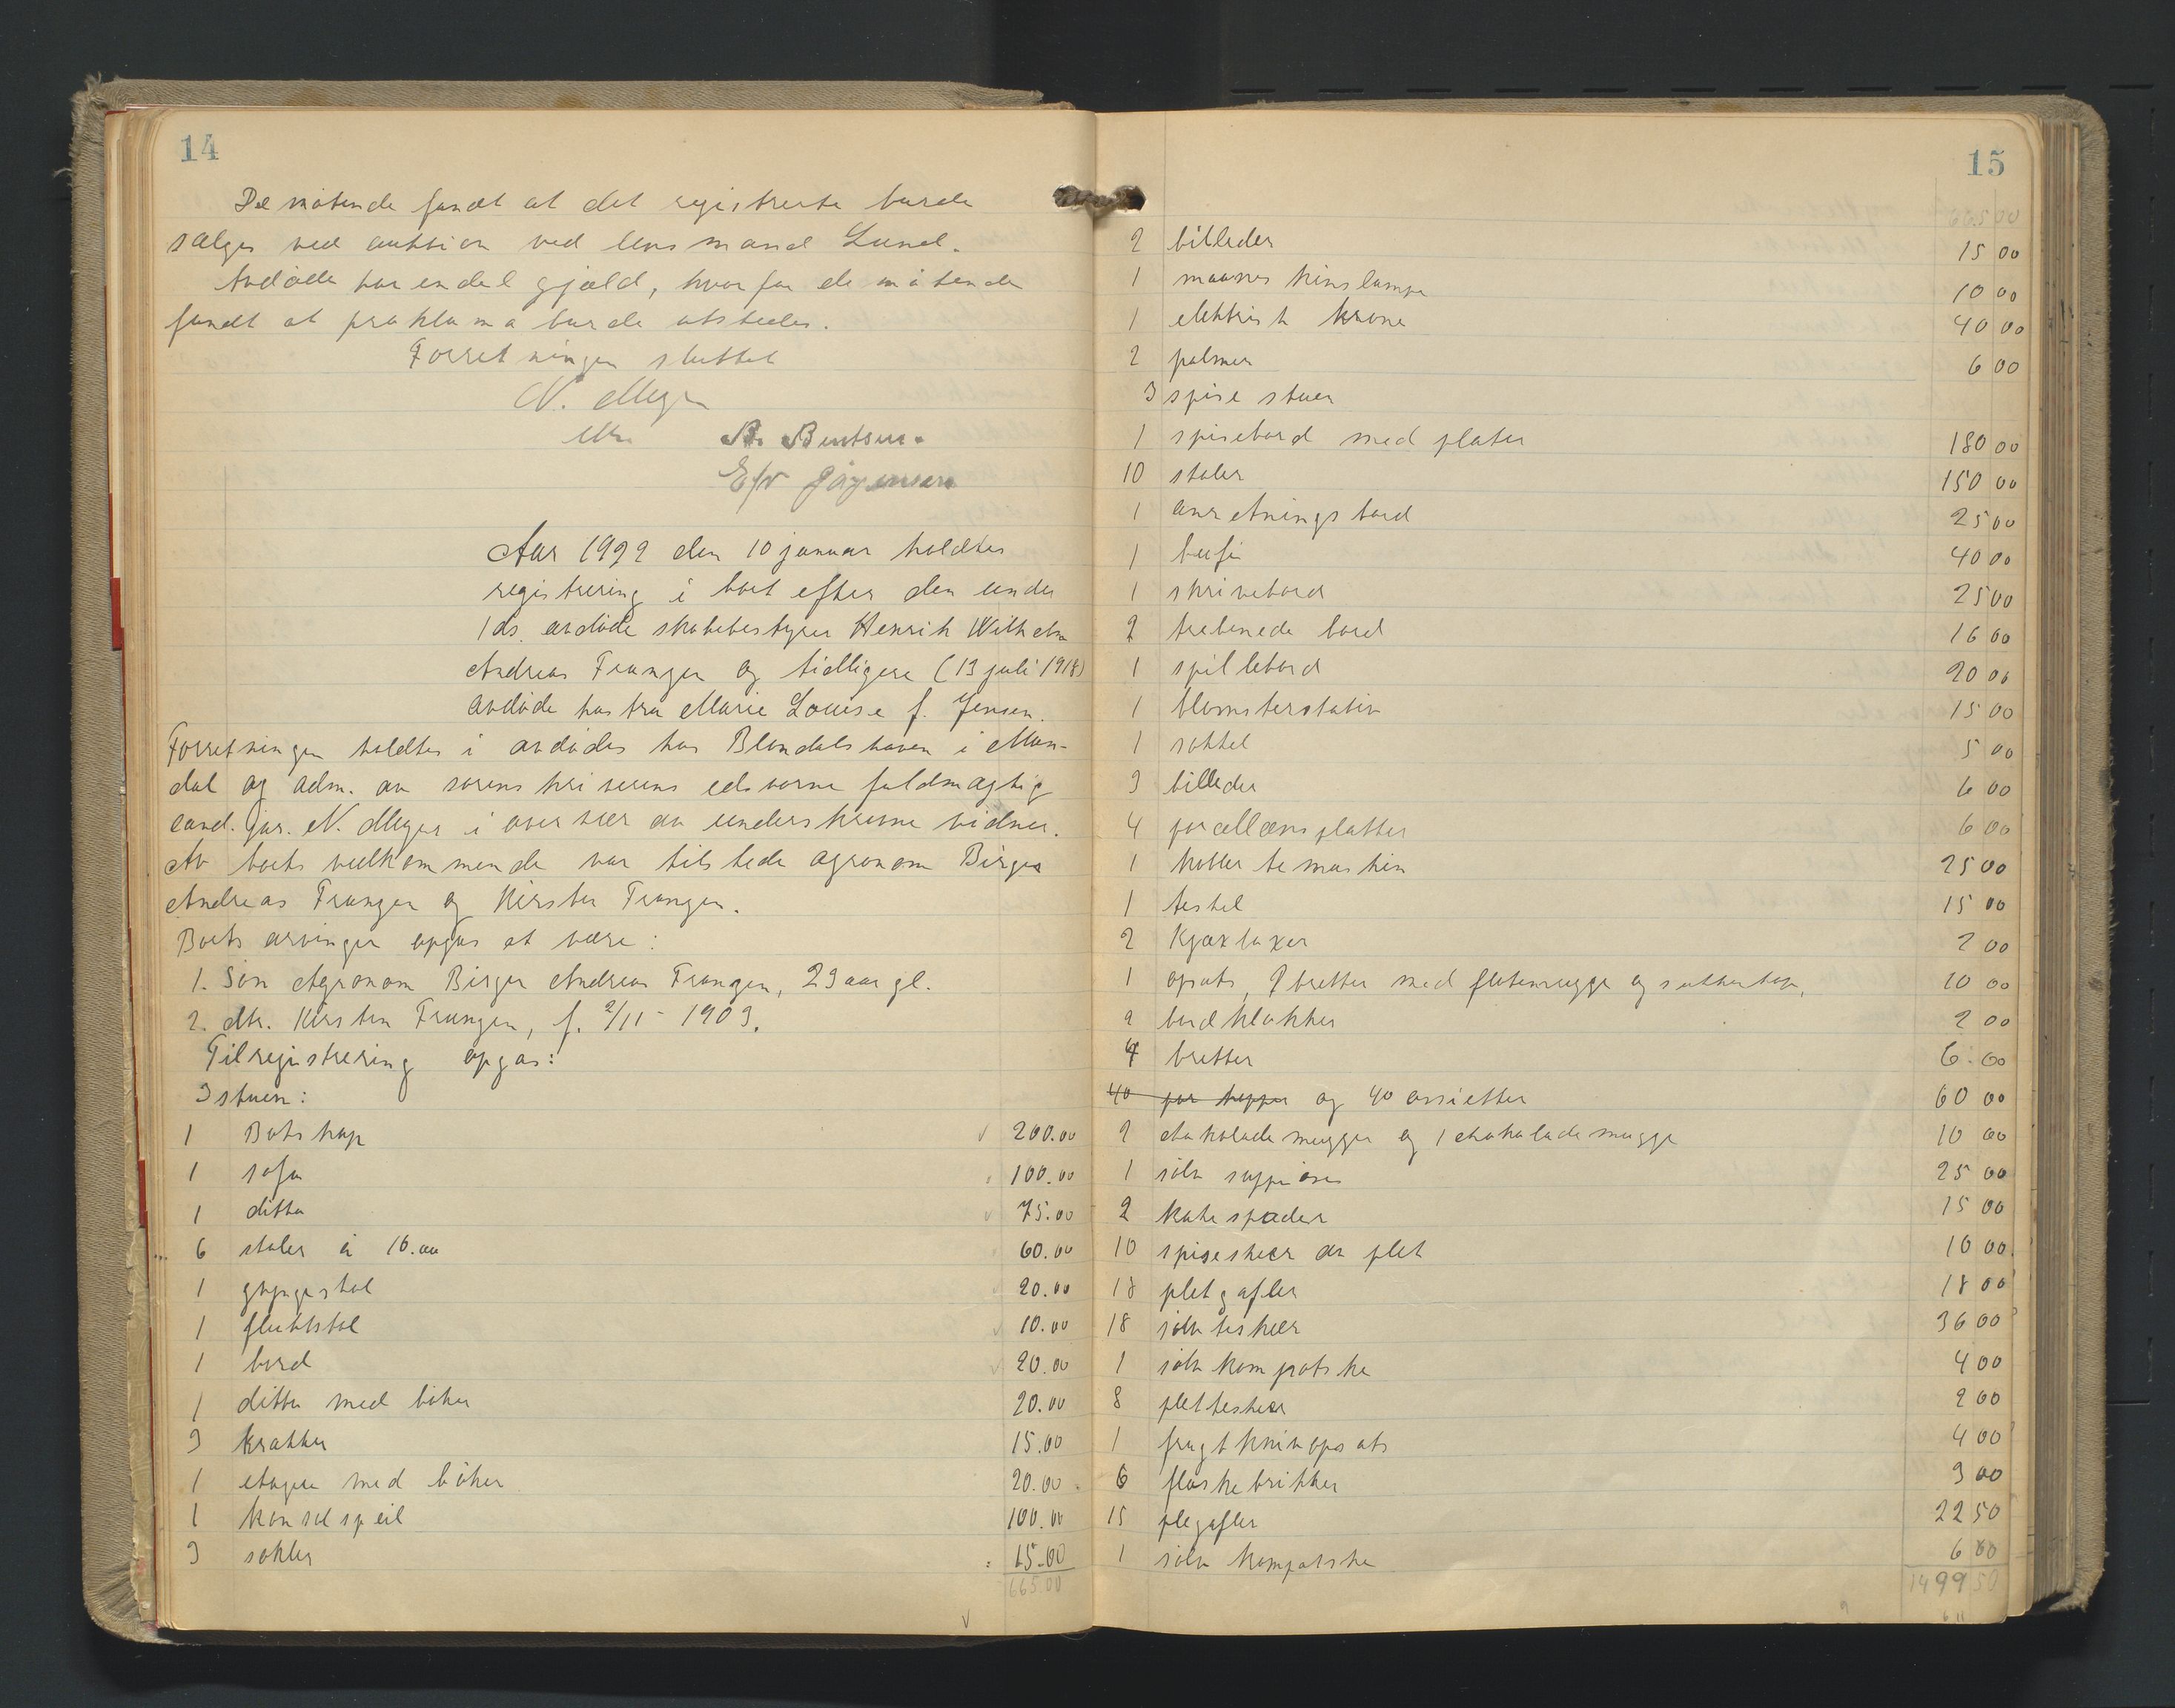 14
De møtende fandt at det registrerte burde
sælges ved auktion ved lensmand Lund.
Avdøde har endel gjæld, hvorfor de møtende
fandt at proklama burde utstedes.
Forretningen sluttet
N. Meyer
B. Bentsen.
Jørgensen
Aar 1922 den 10 januar holdtes
registrering i boet efter den under
1 ds. avdøde skolebestyrer Henrik Wilhelm
Andreas Frangen og tidligere (13 juli 1918)
avdøde hustru Marie Louise f. Jensen.
Forretningen holdtes i avdødes hus Blondalshaven i Man-
dal og adm. av sorenskriverens edsvorne fuldmægtig
cand. jur. N. Meyer i overvær av underskrevne vidner.
Av boets vedkommende var tilstede agronom Birger
Andreas Frangen og Kirsten Frangen.
Boets arvinger opgas at være:
1. Søn Agronom Birger Andreas Frangen, 23 aar gl.
2. dtr. Kirsten Frangen, f. 2/11 - 1903.
Til registrering opgas:
I stuen:
1 Bokskap 200.00
1 sofa 100.00
1 ditto 75.00
6 stoler à 10.00 60.00
1 gyngestol 20.00
1 fluktstol 10.00
1 bord 20.00
1 ditto med bøker 20.00
3 krakker 15.00
1 etagere med bøker 20.00
1 konsolspeil 100.00
3 sokler 15.00
665.00
15
665 00
2 billeder 15 00
1 maaneskinslampe 10 00
1 elektrisk krone 40 00
2 palmer 6 00
I spisestuen
1 spisebord med plater 180 00
10 stoler 150 00
1 anretningsbord 25 00
1 bufé 40 00
1 skrivebord 25 00
2 trebenede bord 16 00
1 spillebord 20 00
1 blomsterstativ 15 00
1 sokkel 5 00
3 billeder 6 00
4 porcellænsplatter 6 00
1 kobber temaskin 25 00
1 teskel 15 00
2 kjæxbokser 2 00
1 opsats, 2 bretter med fløtemugge og sukkerkop, 10 00
2 bordklokker 2 00
4 bretter 6.00
40 par kopper og 40 assietter 60 00
2 chokolademugger og 1 chokolademugge 10 00
1 sølv suppeøse 25 00
2 kakespader 15 00
10 spiseskeer av plet 10 00
18 pletgafler 18 00
18 sølv teskeer 36 00
1 sølv kompotske 4 00
8 pletteskeer 2 00
1 frugtknivopsats 4 00
6 flaskebrikker 3 00
15 pletgafler 22 50
1 sølv kompotske 6 00
1499 50